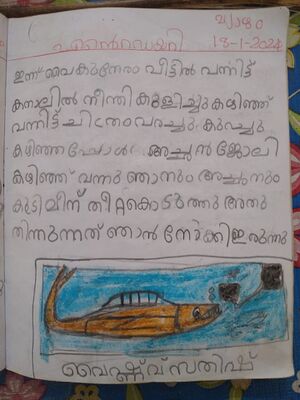 വ്യാഴം
എൻ്റെഡയറി 18-1-2024
ഇന്ന് വൈകുന്നേരം വീട്ടിൽ വന്നിട്ട്
കനാലിൽ നീന്തി കുളിച്ചു കഴിഞ്ഞ്
വന്നിട്ട് ചിത്രം വരച്ചു കുറച്ചു
കഴിഞ്ഞപ്പോൾ അച്ചൻ ജോലി
കഴിഞ്ഞ് വന്നു ഞാനും അച്ചനും
കൂടി മീന് തീറ്റകൊടുത്തു അതു
തിന്നുന്നത് ഞാൻ നോക്കി ഇരുന്നു
വൈഷ്ണവ് സതിഷ്